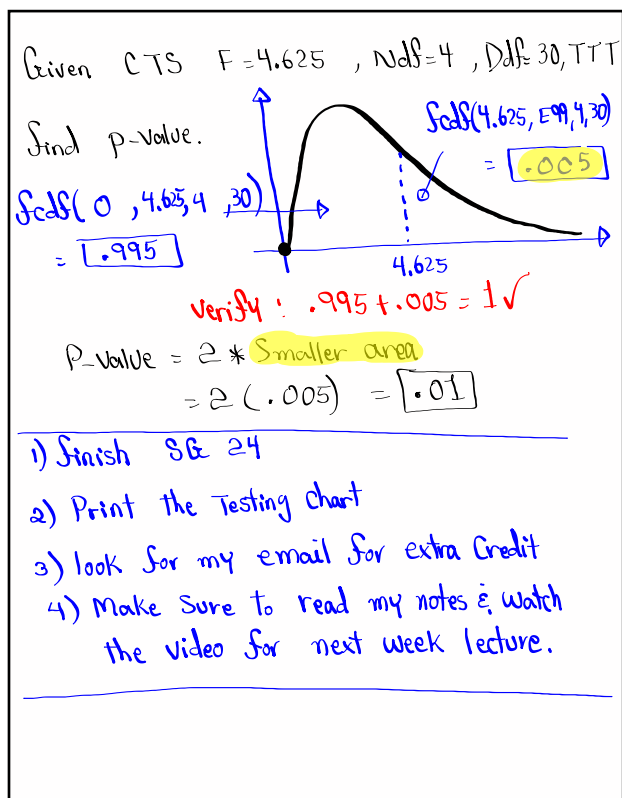 Given CTS F=4.625 , Ndf=4 , Ddf=30, TTT
find p-value.
fcdf(4.625, E99,4,30)
= .005
fcdf( 0 ,4.625,4 ,30)
= .995
4.625
Verify : .995+.005=1✓
P-value = 2 * Smaller area
= 2 (.005) = .01
1) finish SG 24
2) Print the Testing Chart
3) look for my email for extra Credit
4) Make Sure to read my notes & watch
the video for next week lecture.